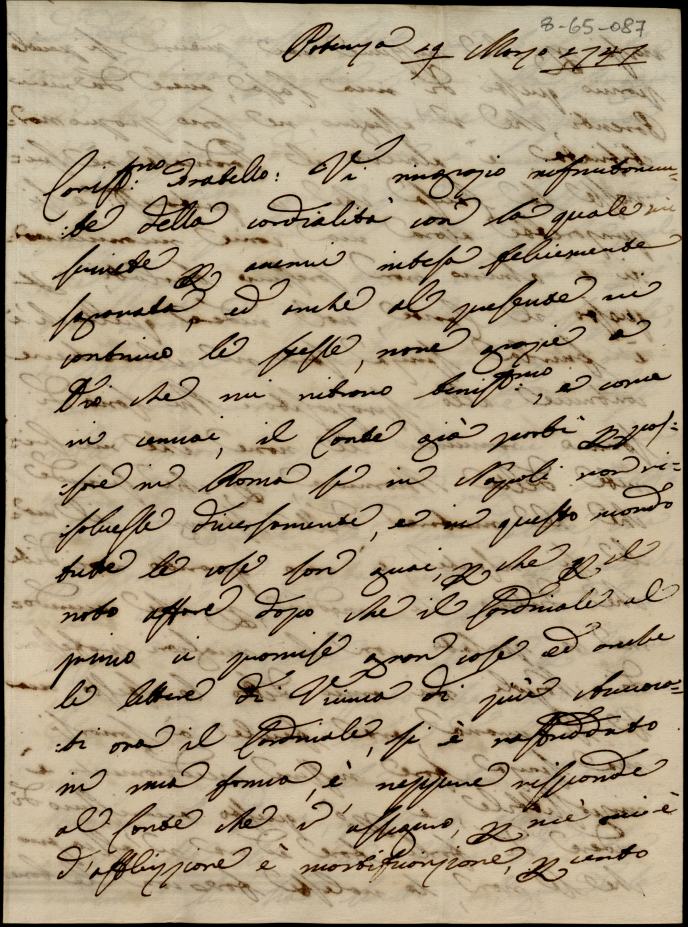 8-65-087
Potenza 29 Marzo 1747
Cariss:mo Fratello: Vi ringrazio
:te della cordialità con la quale mi
scrivete p avermi intesa felicemente
sgravata, ed anche al presente vi
continuo le stesse, nove grazie a
Dio che mi ritrovo beniss:mo, e come
in cennai, il Conte già partì p pas=
:sare in Roma se in Napoli non ri=
:solvesse diversamente, e in questo mondo
tutte le cose son guai, p che p il
noto affare dopo che il Cardinale al
primo ci promise gran cose ed anche
le lettere di Vienna di più
:ti ora il Cardinale, si è raffreddato
in una forma, è, neppure risponde
al Conte che d p me mi è
d'afflizzione è mortificazione, p